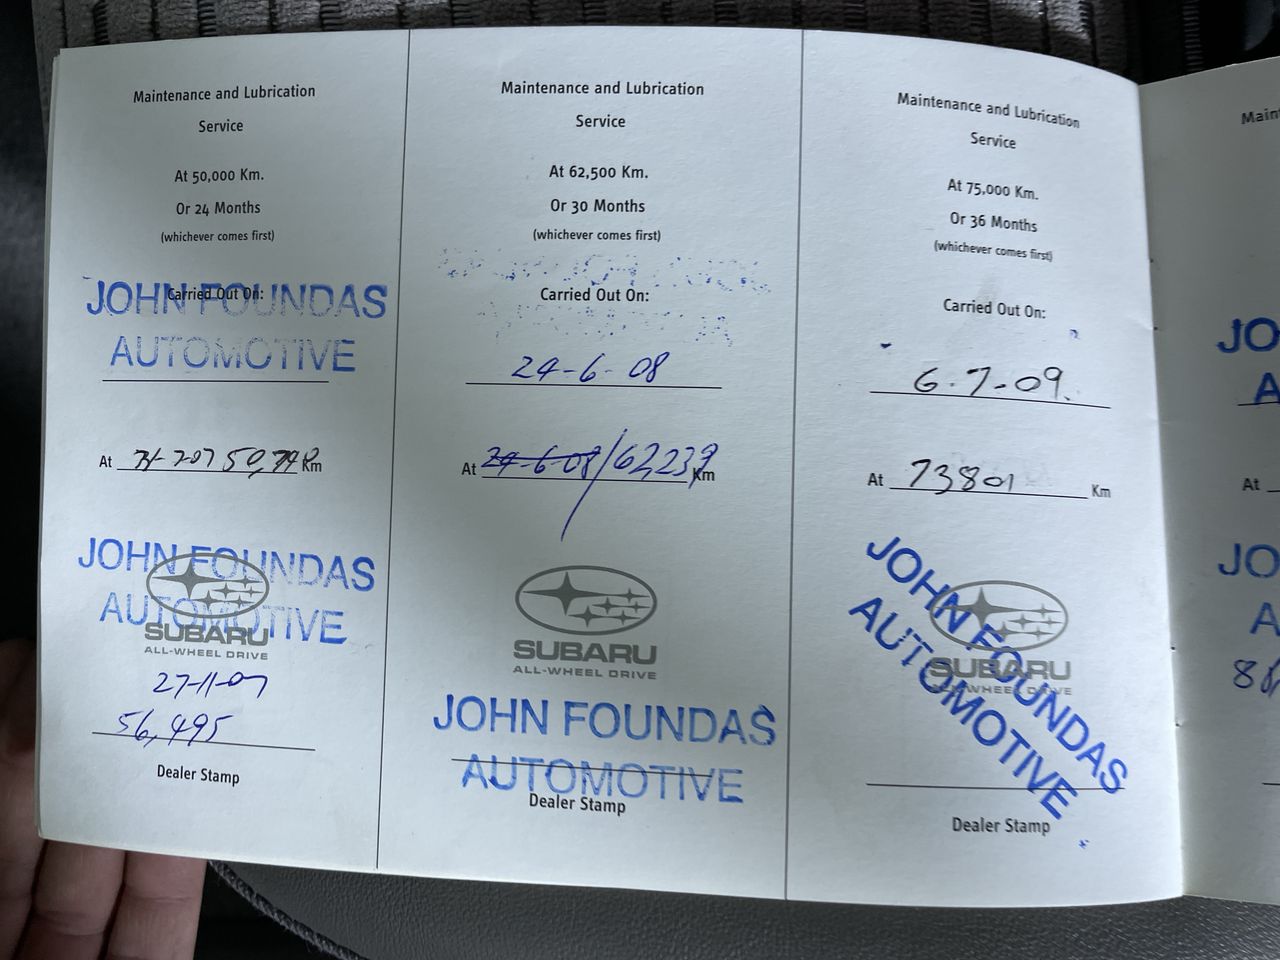 Maintenance and Lubrication
Service
At 50,000 Km.
Or 24 Months
(whichever comes first)
Carried Out On:
JOHN FOUNDAS
AUTOMOTIVE
At 50,798 Km
JOHN FOUNDAS
AUTOMOTIVE
SUBARU
ALL-WHEEL DRIVE
27-11-07
56,495
Dealer Stamp
Maintenance and Lubrication
Service
At 62,500 Km.
Or 30 Months
(whichever comes first)
Carried Out On:
24-6-08
At 24-6-08/62,239 Km
SUBARU
ALL-WHEEL DRIVE
JOHN FOUNDAS
AUTOMOTIVE
Dealer Stamp
Maintenance and Lubrication
Service
At 75,000 Km.
Or 36 Months
(whichever comes first)
Carried Out On:
6-7-09
At 73801 Km
JOHN FOUNDAS
AUTOMOTIVE
SUBARU
ALL-WHEEL DRIVE
Dealer Stamp
Main
JO
A
At
JO
A